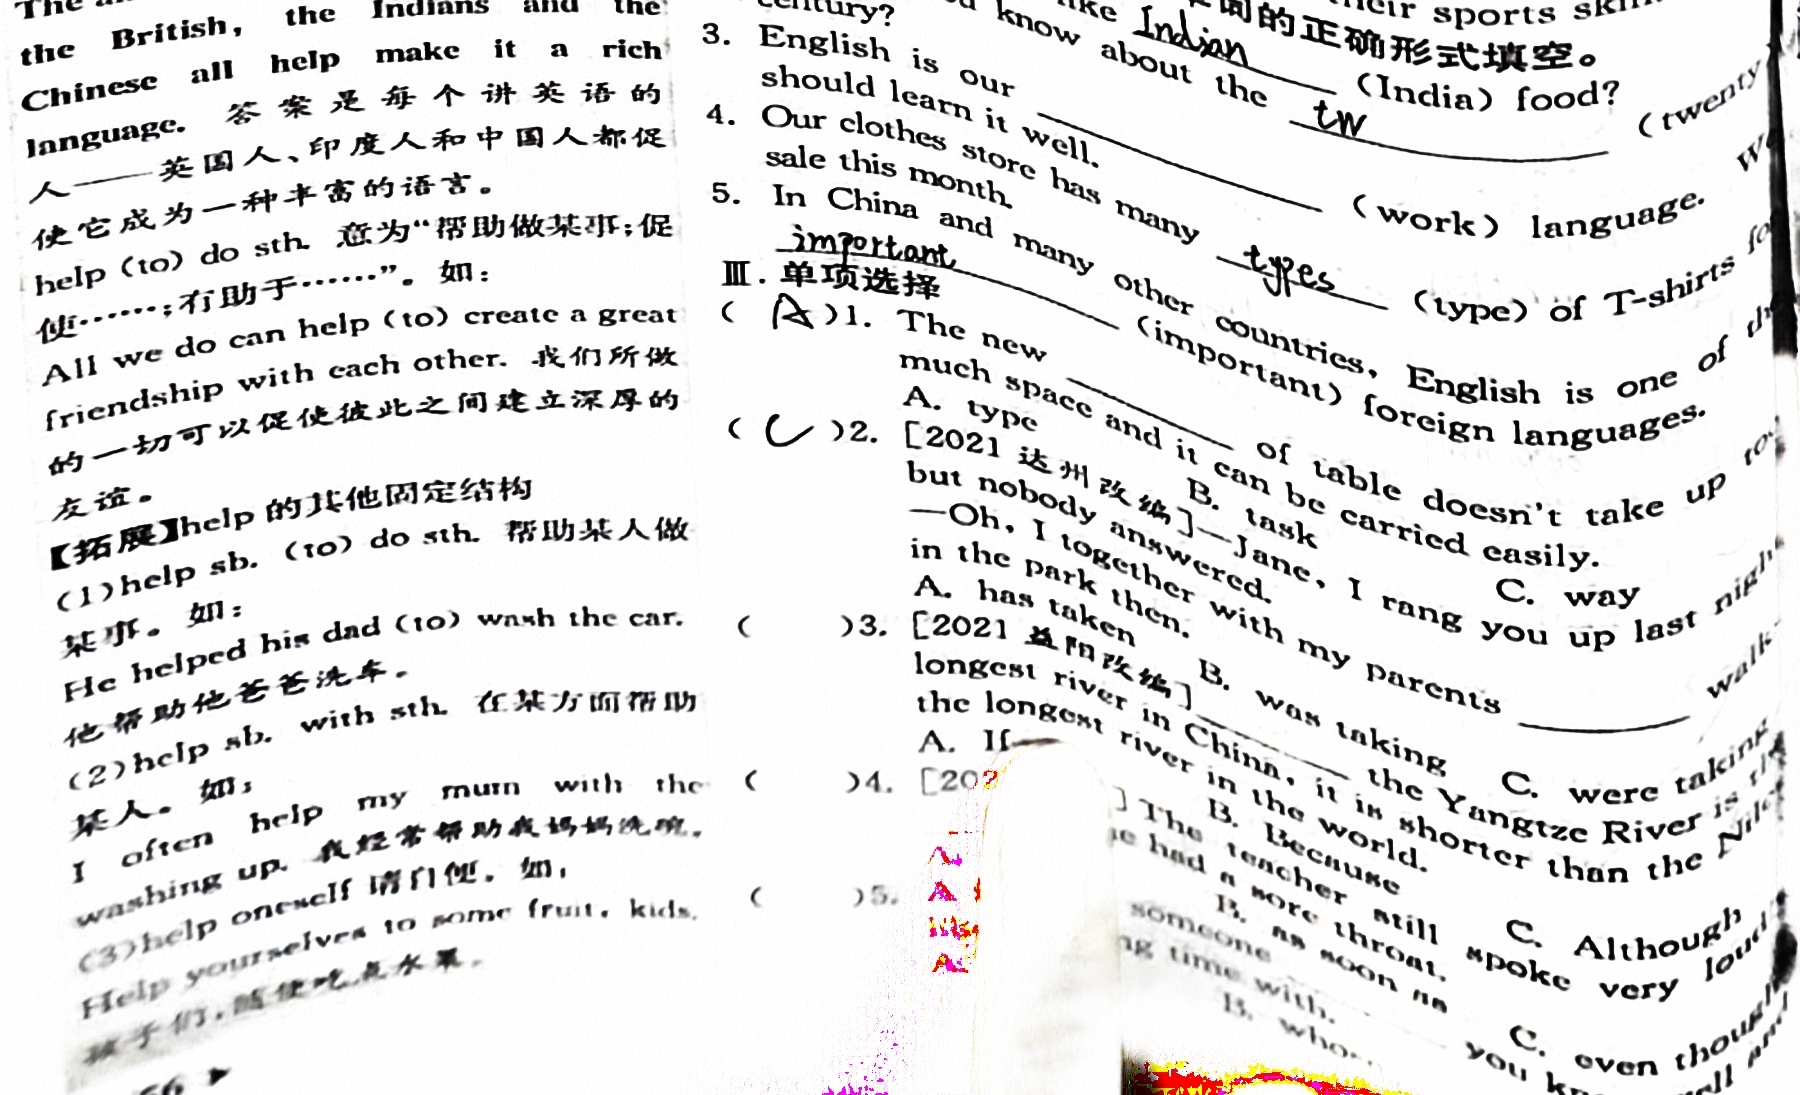 the British, the Indians and the
Chinese all help make it a rich
language. 答案是每个讲英语的
人——英国人、印度人和中国人都促
使它成为一种丰富的语言。
help (to) do sth. 意为“帮助做某事;促
使……;有助于……”。如:
All we do can help (to) create a great
friendship with each other. 我们所做
的一切可以促使彼此之间建立深厚的
友谊。
【拓展】help 的其他固定结构
(1)help sb. (to) do sth. 帮助某人做
某事。如:
He helped his dad (to) wash the car.
他帮助他爸爸洗车。
(2)help sb. with sth. 在某方面帮助
某人。如:
I often help my mum with the
washing up. 我经常帮助我妈妈洗碗。
(3)help oneself 请自便。如:
Help yourselves to some fruit, kids.
孩子们,随便吃点水果。
56
their sports
词的正确形式填空。
like Indian (India) food?
know about the tw (twenty
century?
3. English is our ____ (work) language. We
should learn it well.
4. Our clothes store has many types (type) of T-shirts for
sale this month.
5. In China and many other countries, English is one of the
important (important) foreign languages.
Ⅲ. 单项选择
( A )1. The new ____ of table doesn't take up too
much space and it can be carried easily.
A. type B. task C. way
( C )2. [2021 达州改编]—Jane, I rang you up last night
but nobody answered.
—Oh, I together with my parents ____ walk
in the park then.
A. has taken B. was taking C. were taking
( )3. [2021 益阳改编] ____ the Yangtze River is the
longest river in China, it is shorter than the Nile,
the longest river in the world.
A. If B. Because C. Although
( )4. [202 ] The teacher still spoke very loud
he had a sore throat.
B. as soon as C. even though
( )5. someone you kn well and
ng time with.
B. who